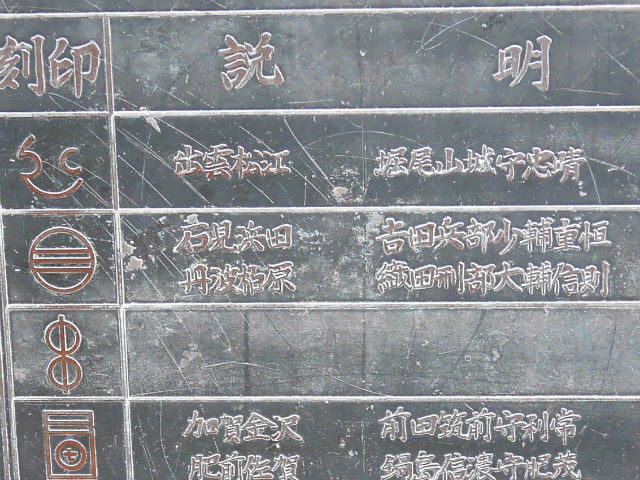 刻印 説明
出雲松江 堀尾山城守忠晴
石見浜田 古田兵部少輔重恒
丹波柏原 織田刑部大輔信則
加賀金沢 前田筑前守利常
肥前佐賀 鍋島信濃守肥茂